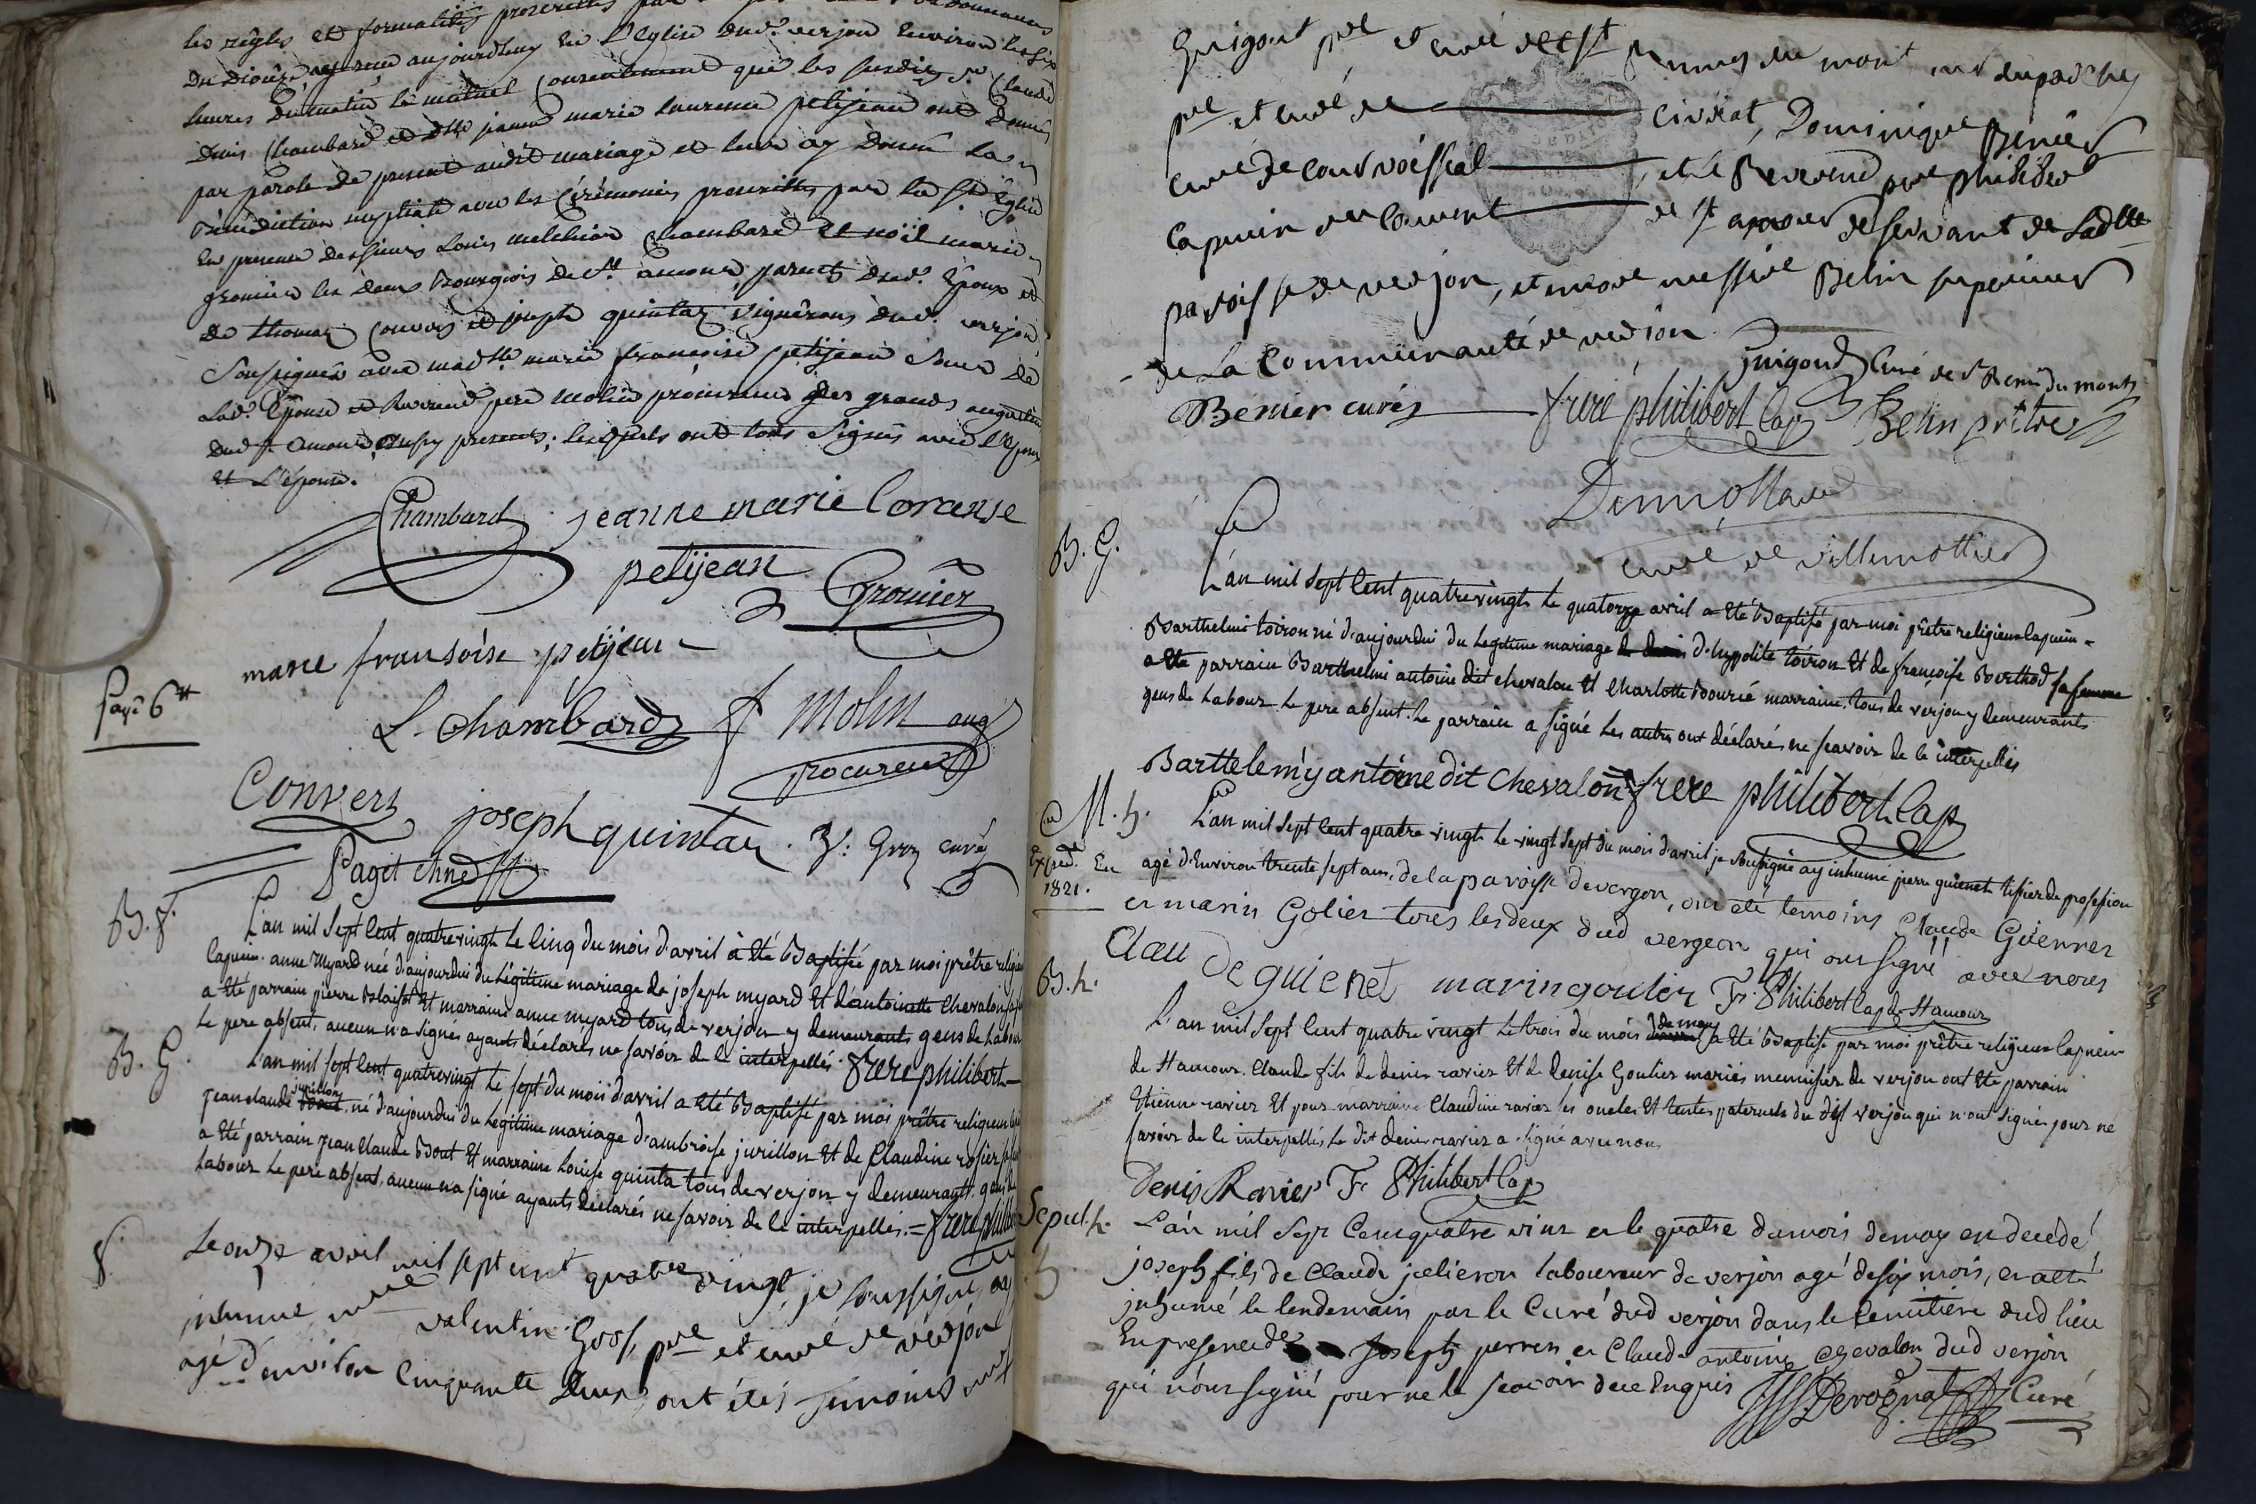 les règles et formalités prescrittes par
du Diocèse aujourdhuy En L'Eglise dud. verjon Environ les six
heures du matin le mutuel Consentement que les susdits Sr. Claude
Denis Chambard et dlle jeanne marie laurence petijean ont Donnés
par parole de present audit mariage et leur ay Donné La
Bénédiction nuptiale avec les Cérémonies prescrittes par la Ste Eglise
En presence des sieurs Louis melchior Chambard et noël marie
gromier les deux Bourgeois de St. amour parents dud. Epoux et
de thomas Convers et joseph quintar vignerons dud. verjon
Soussignés avec madlle. marie francoise petijean Soeur de
Lad. Epouse et Reverend pere molin procureur des grands augustins
dud St amour aussy presents; lesquels ont tous Signés avec L'Epoux
et L'épouse.
Chambard jeanne marie loranse
petijean Gromier
marie fransoise petijean
Payé 6tt
L. Chambard f Molin aug
procureur
Convers joseph quintar. Groz curé
B. f.
L'an mil Sept Cent quatrevingt Le Cinq du mois d'avril à été Baptisée par moi prêtre religieux
Capucin. anne myard née d'aujourdui du Légitime mariage de joseph myard Et d'antoinette Chevalon
a été parrain pierre Et marraine anne myard tous de verjon y demeurants gens de Labour
Le pere absent, aucun n'a signés ayants déclarés ne savoir de le interpellés. frere philibert
B. G.
L'an mil Sept Cent quatrevingt le sept du mois d'avril a été Baptisé par moi prêtre religieux
jean claude jurillon né d'aujourdui du Légitime mariage d'ambroise jurillon Et de Claudine rosier
a été parrain jean Claude Bout Et marraine Louise quinta tous de verjon y demeurants gens de
Labour Le pere absent, aucun n'a signé ayants déclarés ne savoir de le interpellés. = frere philibert
S.
Le onze avril mil sept cent quatre vingt, je soussigné, ay
inhumé valentin Gros, ptre et curé de verjon
agé d'environ Cinquante ans, ont étés Temoins
Guigout ptre et curé de St Remy du mont
ptre et curé de Civriat, Dominique Benier
curé de courvoissial et le Reverend pere philibert
Capucin du Couvent de St amour desservant de Ladtte
paroisse de verjon, et messire Belin superieur
de La Communauté de verjon.
Guigout Curé de St Remi du mont
Benier curé frere philibert Cap Belin prêtre
curé de villemottier
B. G.
L'an mil Sept Cent quatrevingt le quatorze avril a été Baptisé par moi prêtre religieux Capucin
Barthelmi toiron né d'aujourdui du Legitime mariage d'hyppolite toiron Et de françoise Berthod sa femme
a été parrain Barthelmi antoine dit chevalon Et Charlotte Bourié marraine, tous de verjon y demeurants
gens de Labour Le pere absent. Le parrain a signé Les autres ont déclarés ne scavoir de le interpellés
Barttelemy antoine dit Chevalon frere philibert Cap
M. h.
Exped. En
1821.
L'an mil Sept Cent quatre vingt Le vingt sept du mois d'avril je Soussigné ay inhumé pierre guienet tissier de profession
agé d'Environ trente sept ans, de la paroisse de vergon, ont été temoins Claude Guienner
et marin Golier tous les deux dud vergeon qui ont signé avec nous
Claude guienet maringoulier Fr. Philibert Cap de St amour
B. h.
L'an mil Sept Cent quatre vingt Le trois du mois de may a été Baptisé par moi prêtre religieux Capucin
de St amour. Claude fils de denis ravier Et de Denise Goulier mariés menuisier de verjon ont été parrain
Etienne ravier Et pour marraine Claudine ravier ses oncles Et tentes paternels du dit verjon qui n'ont signé pour ne
savoir de le interpellés Le dit denis ravier a signé avec nous
Denis Ravier Fr. Philibert Cap
Sepul. h.
L'an mil Sept Cent quatre vint et le quatre du mois de may en decedé
joseph fils de Claude jelieron laboureur de verjon agé de six mois, et a été
inhumé le lendemain par le Curé dud verjon dans le Cemitiere dud lieu
En presence de Joseph perren et Claude antoine chevalon dud verjon
qui n'ont signé pour ne le scavoir de ce Enquis Curé